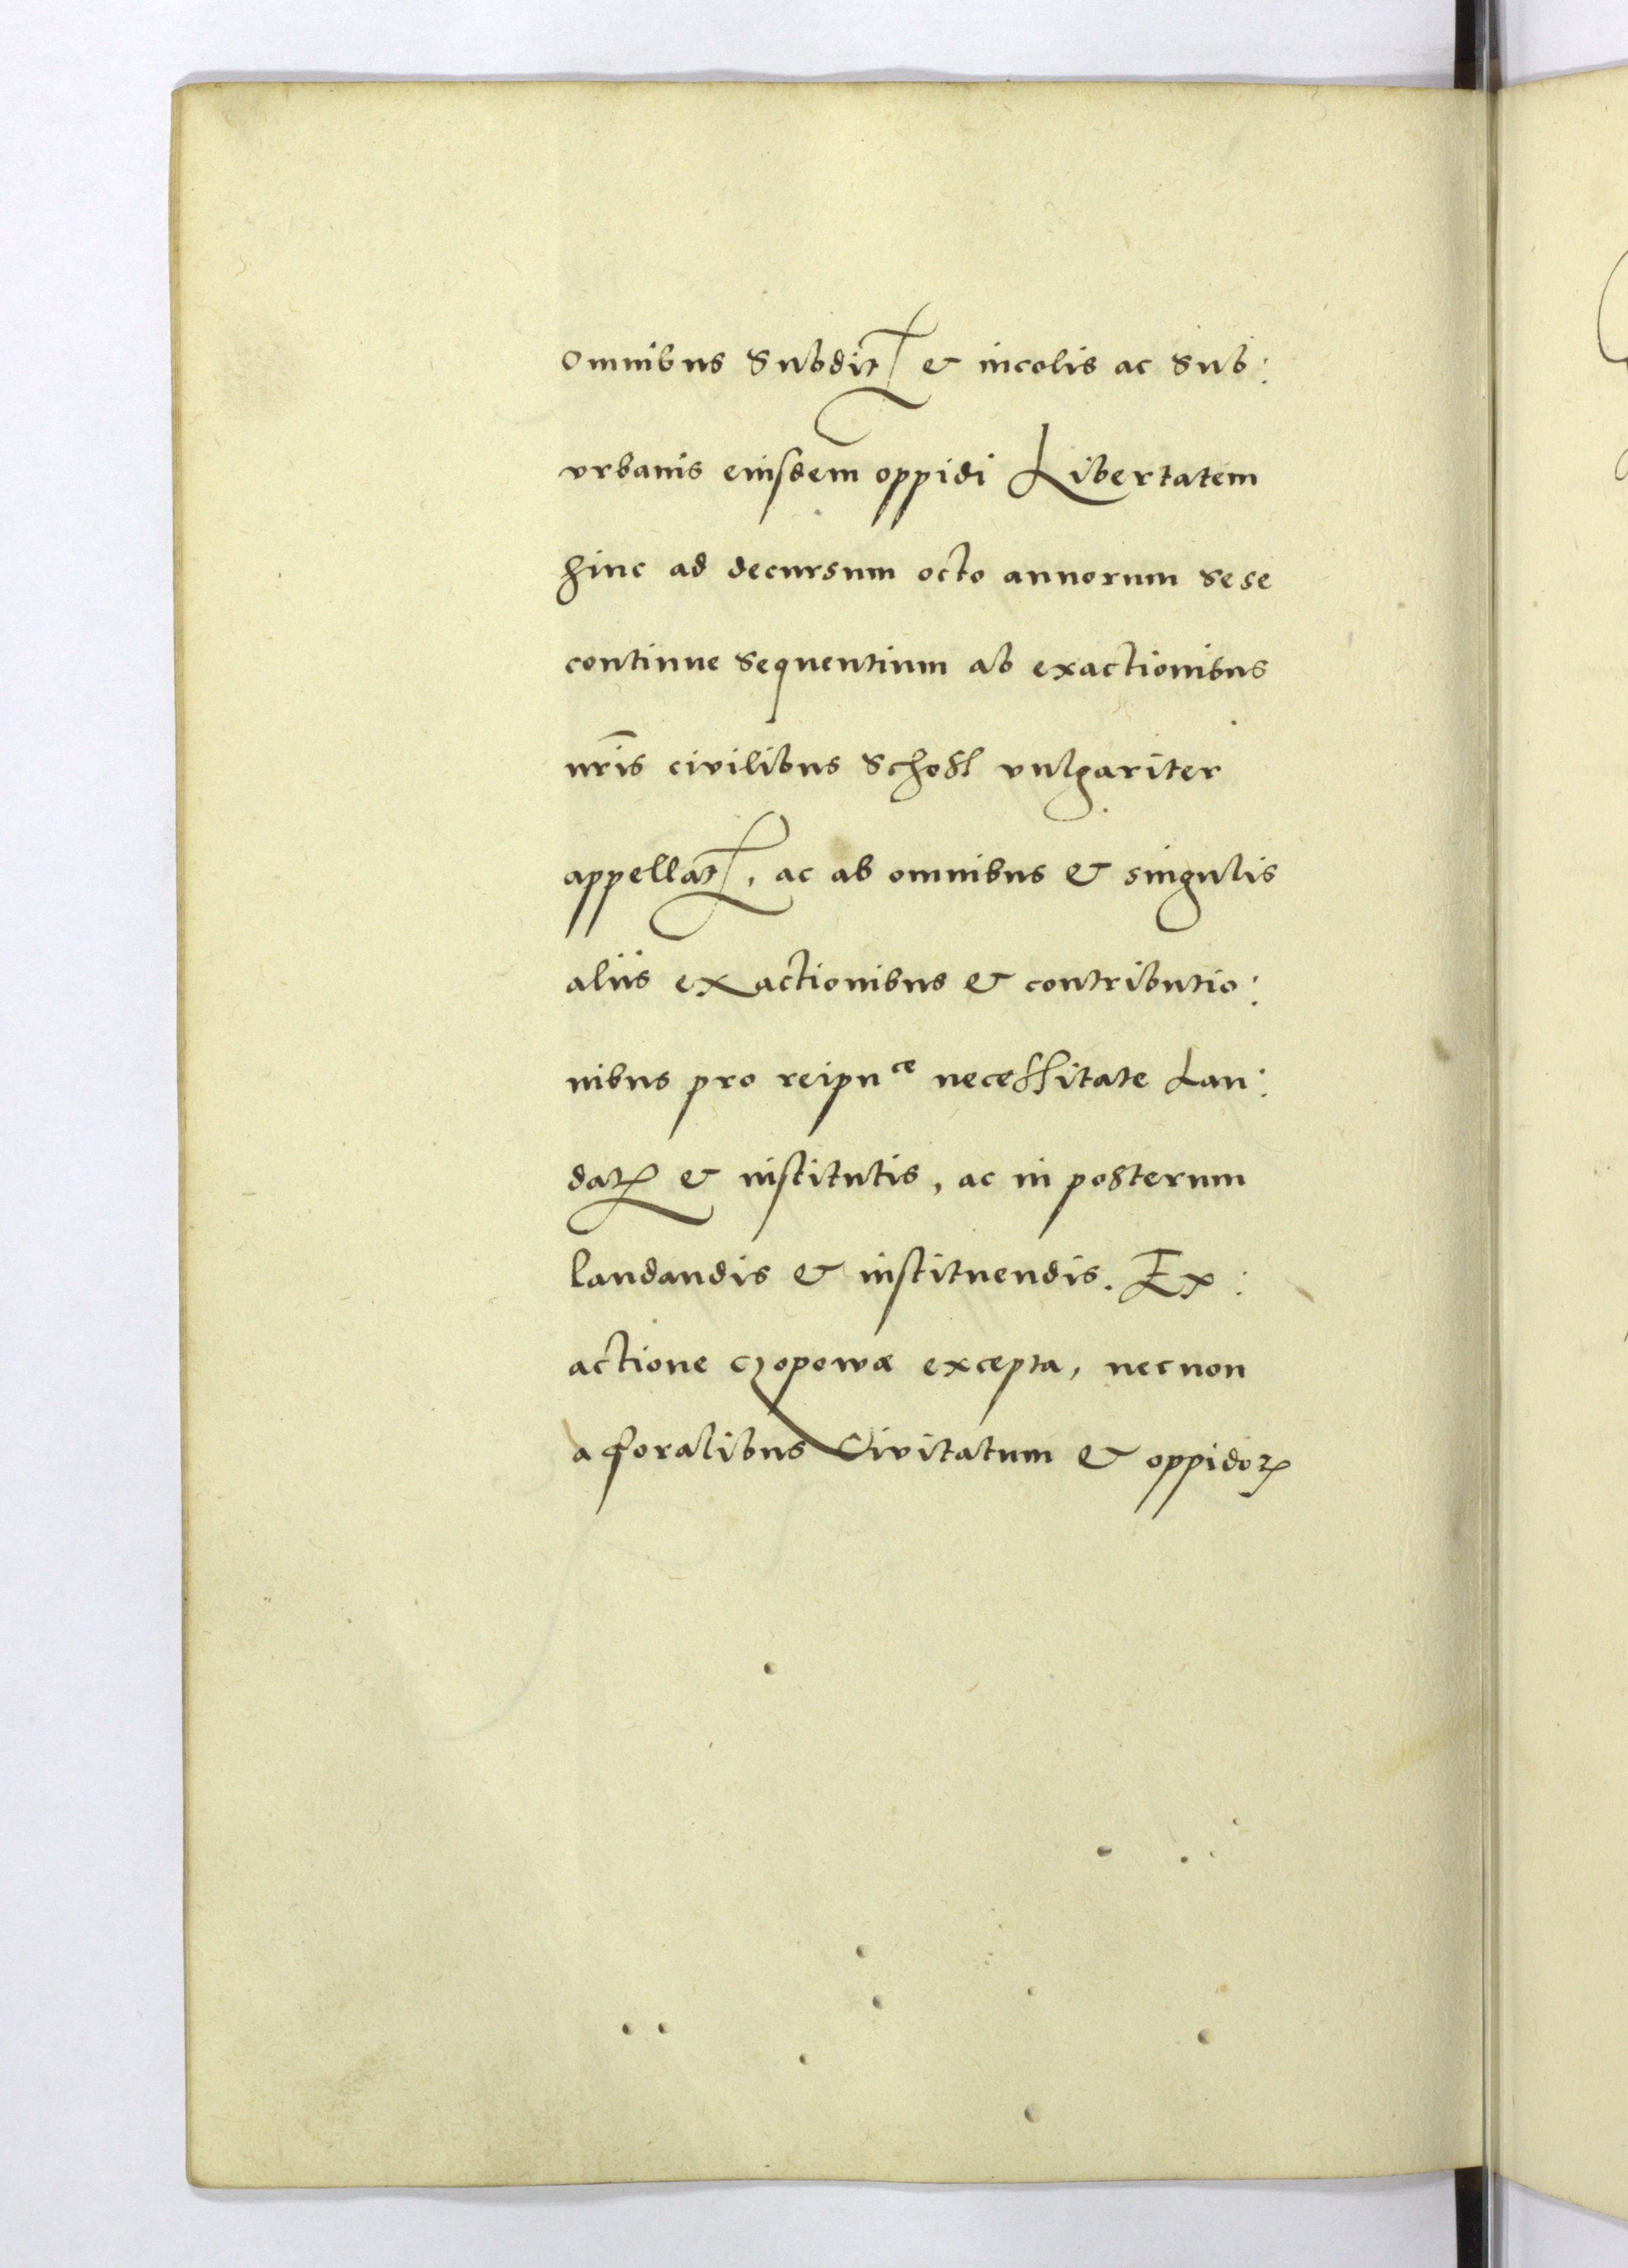 omnibus subditꝭ & incolis ac sub:
urbanis eiusdem oppidi Libertatem
hinc ad decursum octo annorum sese
continue sequentium ab exactionibus
nr̃is civilibus schosſ vulgariter
appellatꝭ, ac ab omnibus & singulis
aliis exactionibus & contributio:
nibus pro reipuᶜᵉ necessitate Lau:
datꝭ & institutis, ac in posterum
laudandis & instituendis. Ex:
actione czopowæ excepta, necnon
a foralibus Civitatum & oppidoꝝ